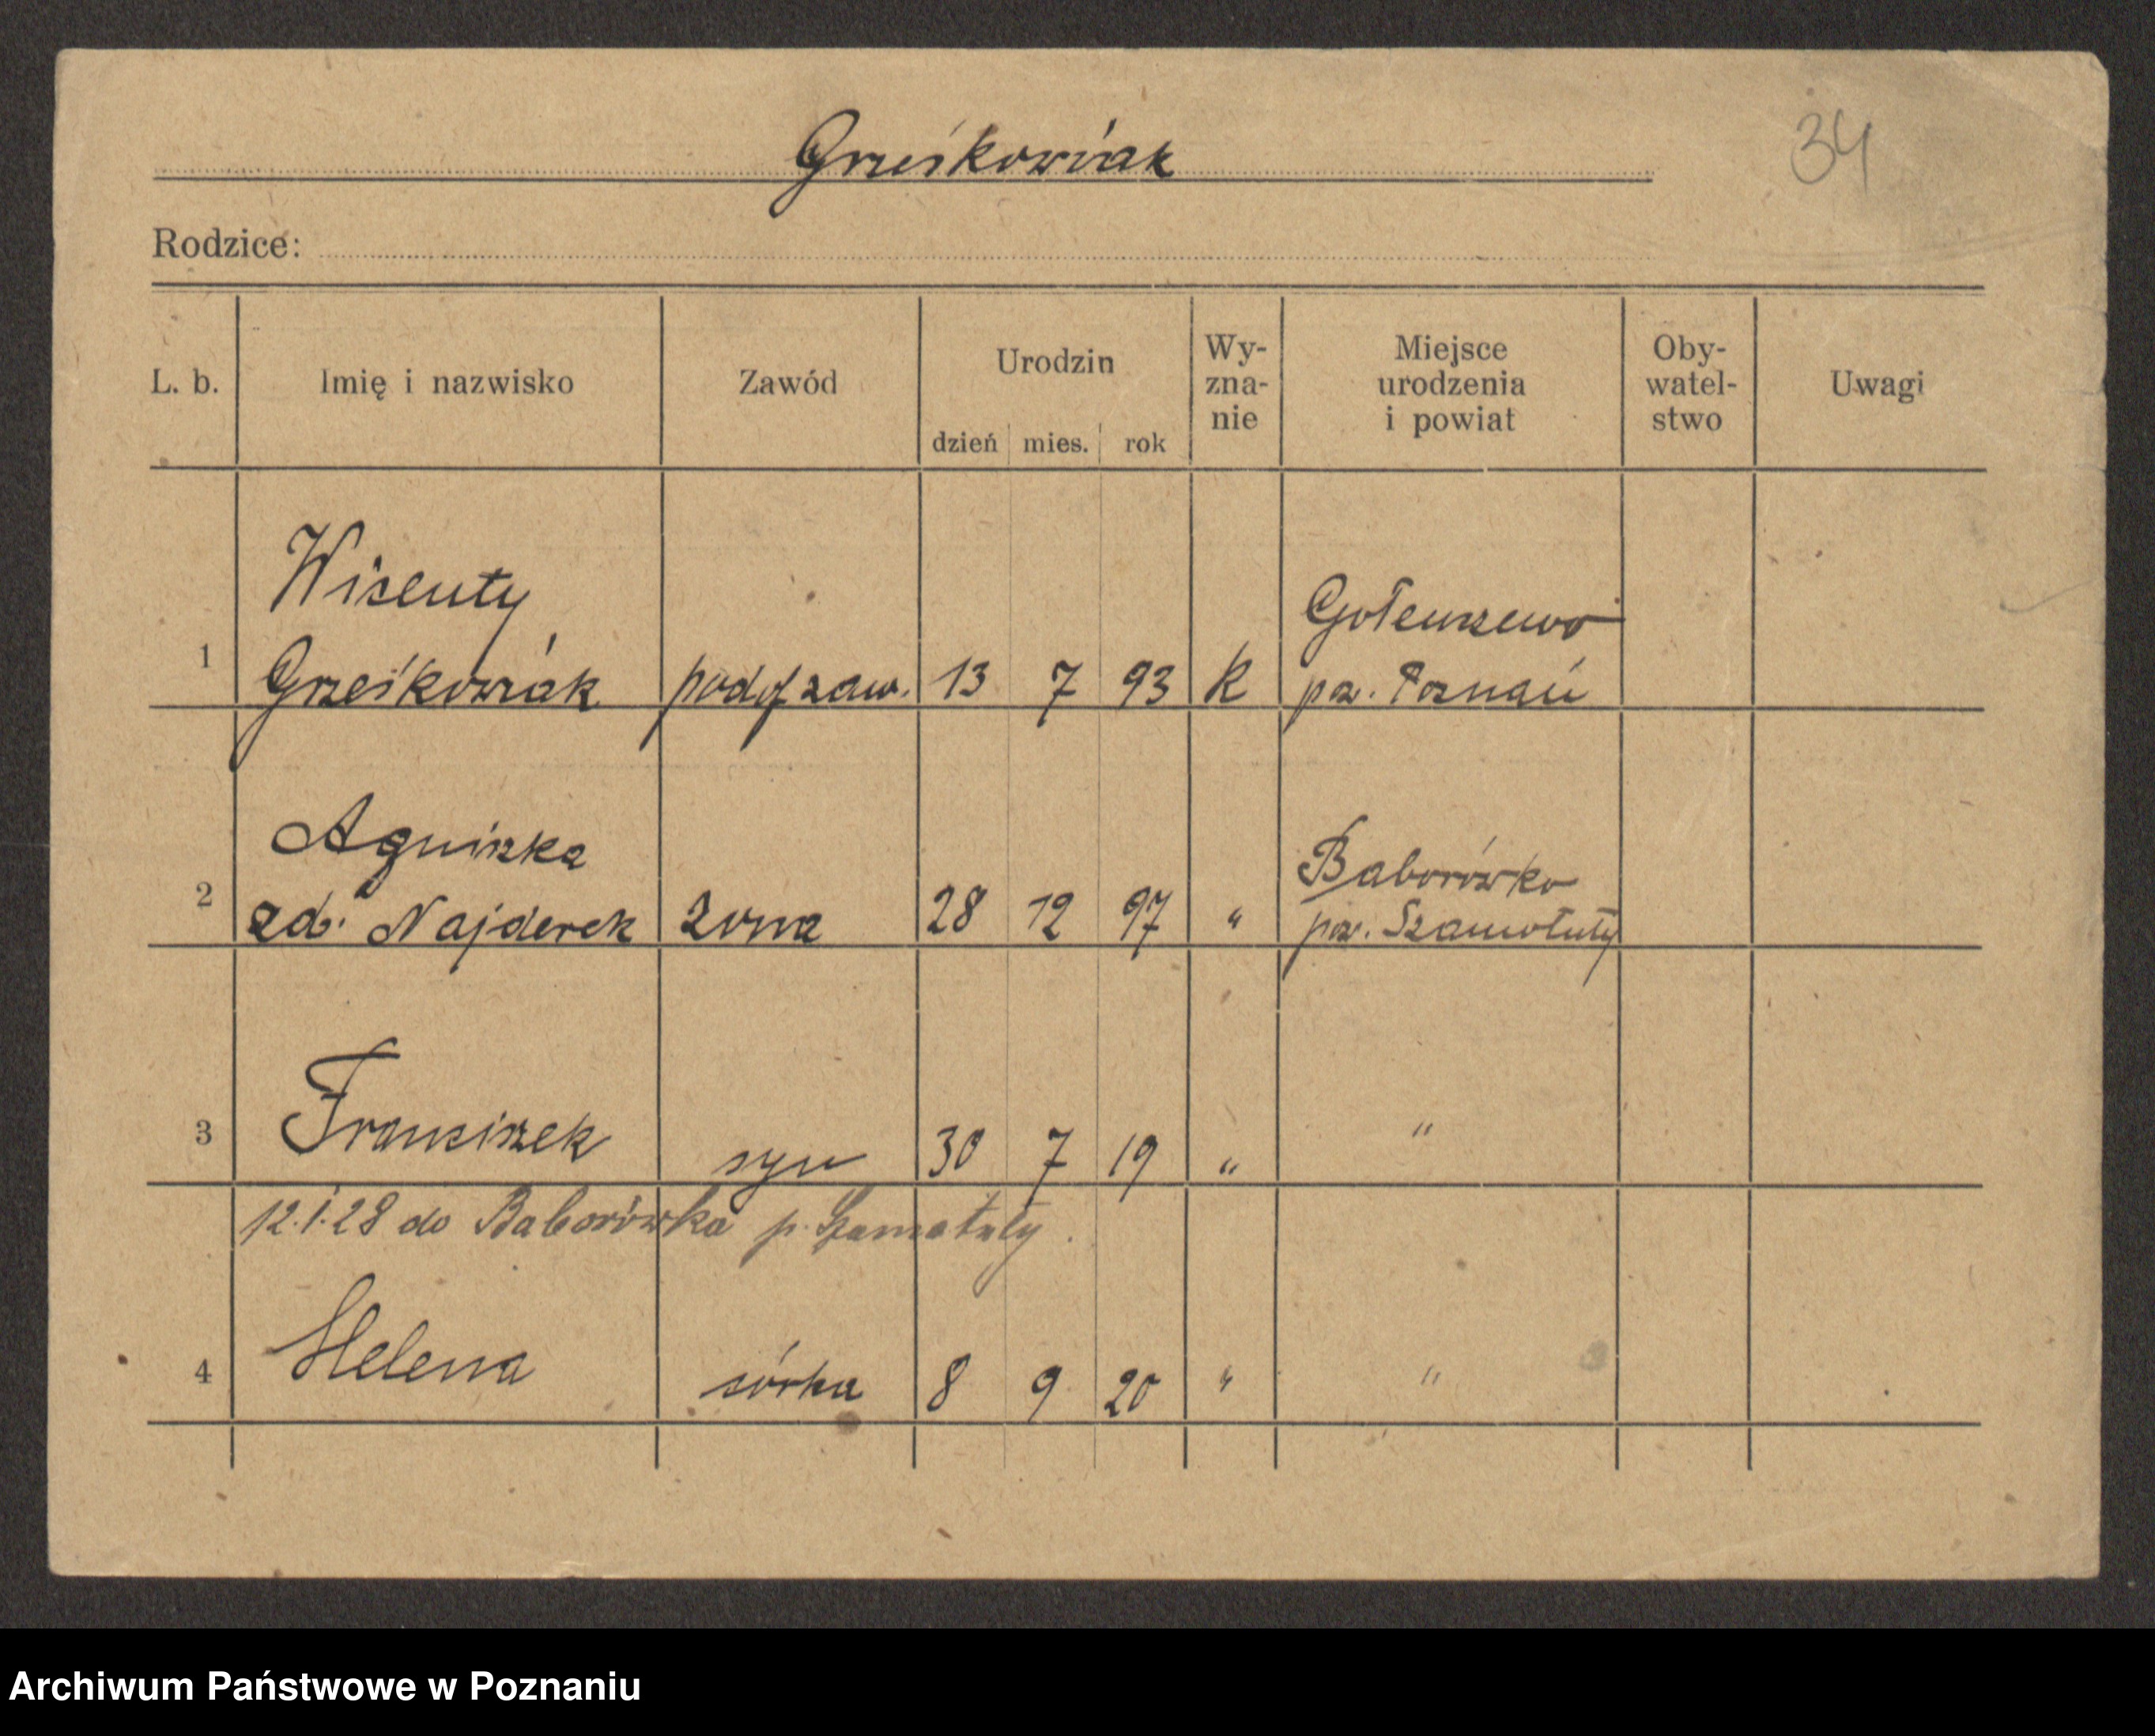 Grześkowiak
34
Rodzice:
L. b. Imię i nazwisko Zawód Urodzin dzień mies. rok Wy-zna-nie Miejsce urodzenia i powiat Oby-watel-stwo Uwagi
Wicenty Gołenczewo
1 Grześkowiak podof zaw. 13 7 93 K pow. Poznań
Agniszka Baborówko
2 zd. Najderek żona 28 12 97 " pow. Szamotuły
3 Franciszek syn 30 7 19 " "
12.1.28 do Baborówka p. Szamotuły.
4 Helena córka 8 9 20 " "
Archiwum Państwowe w Poznaniu